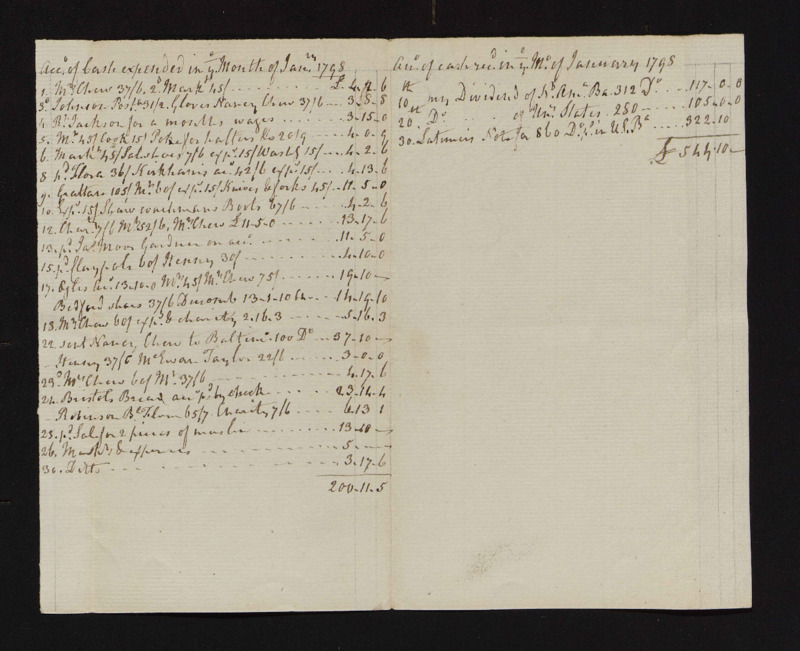 Accᵗ. of Cash expended in yᵉ Month of Janʳʸ 1798
1. Mʳˢ Chew 37/6. 2ᵈ Mark 45/ £ 4.2.6
3ᵈ Johnson Post 31/2. Gloves Nancy Chew 37/6 3.8.8
4. Rᵗ Jackson for a months wages 3.15.0
5. Mʳ 45/ Cook 15/ 4.0.9
6. Mark 45/ Sal shoes 7/6 expˢ. 15/ Washᵍ 15/ 4.2.6
8 pᵈ. Flora 36/ Kirkhams ac 42/6 expˢ. 15/ 4.13.6
9. 105/ Mʳ 60/ expˢ. 15/ Knives & forks 45/ 11.5.0
10. Expˢ. 15/ Shaw coachmans Boots 67/6 4.2.6
12. Charʸ 7/6 Mʳ 52/6. Mʳˢ Chew £11.5.0 13.17.6
13. pᵈ. Jaˢ. Moor Gardner on acc 11.5.0
15. pᵈ. Claypole 60/ Henny 30/ 4.10.0
17. acc 13.10.0 Mʳ 45/ Mʳˢ Chew 75/ 19.10
Bedford shoes 37/6 Duncomb 13.1.10 14.19.10
18. Mʳˢ Chew 60/ expˢ. & charity 2.16.3 5.16.3
22. sent Nancy Chew to Baltimᵉ. 100 Dˢ 37.10
Henny 37/6 McEwan Taylor 22/6 3.0.0
23ᵈ. Mʳˢ Chew 60/ Mʳ 37/6 4.17.6
24. Bristols Bread acc pᵈ. by check 23.14.4
Robinson Bˡ Flour 65/7 Charity 7/6 6.13 1
25. pᵈ. Sal. for 2 pieces of muslin 13.10
26. Markᵗ. & expences 5
30. Ditto 3.17.6
200.11.5
Accᵗ. of cash recᵈ. in yᵉ Mᵒ. of January 1798
10ᵗʰ my Dividend of Nᵒ. Ameᵃ. Ba. 312 Dˢ 117.0.0
20ᵗʰ Dᵒ of Unᵈ. States 280 105.0.0
30. Latimers Note for 860 Dˢ. in U.S. Bᵃ 322.10
£ 544.10